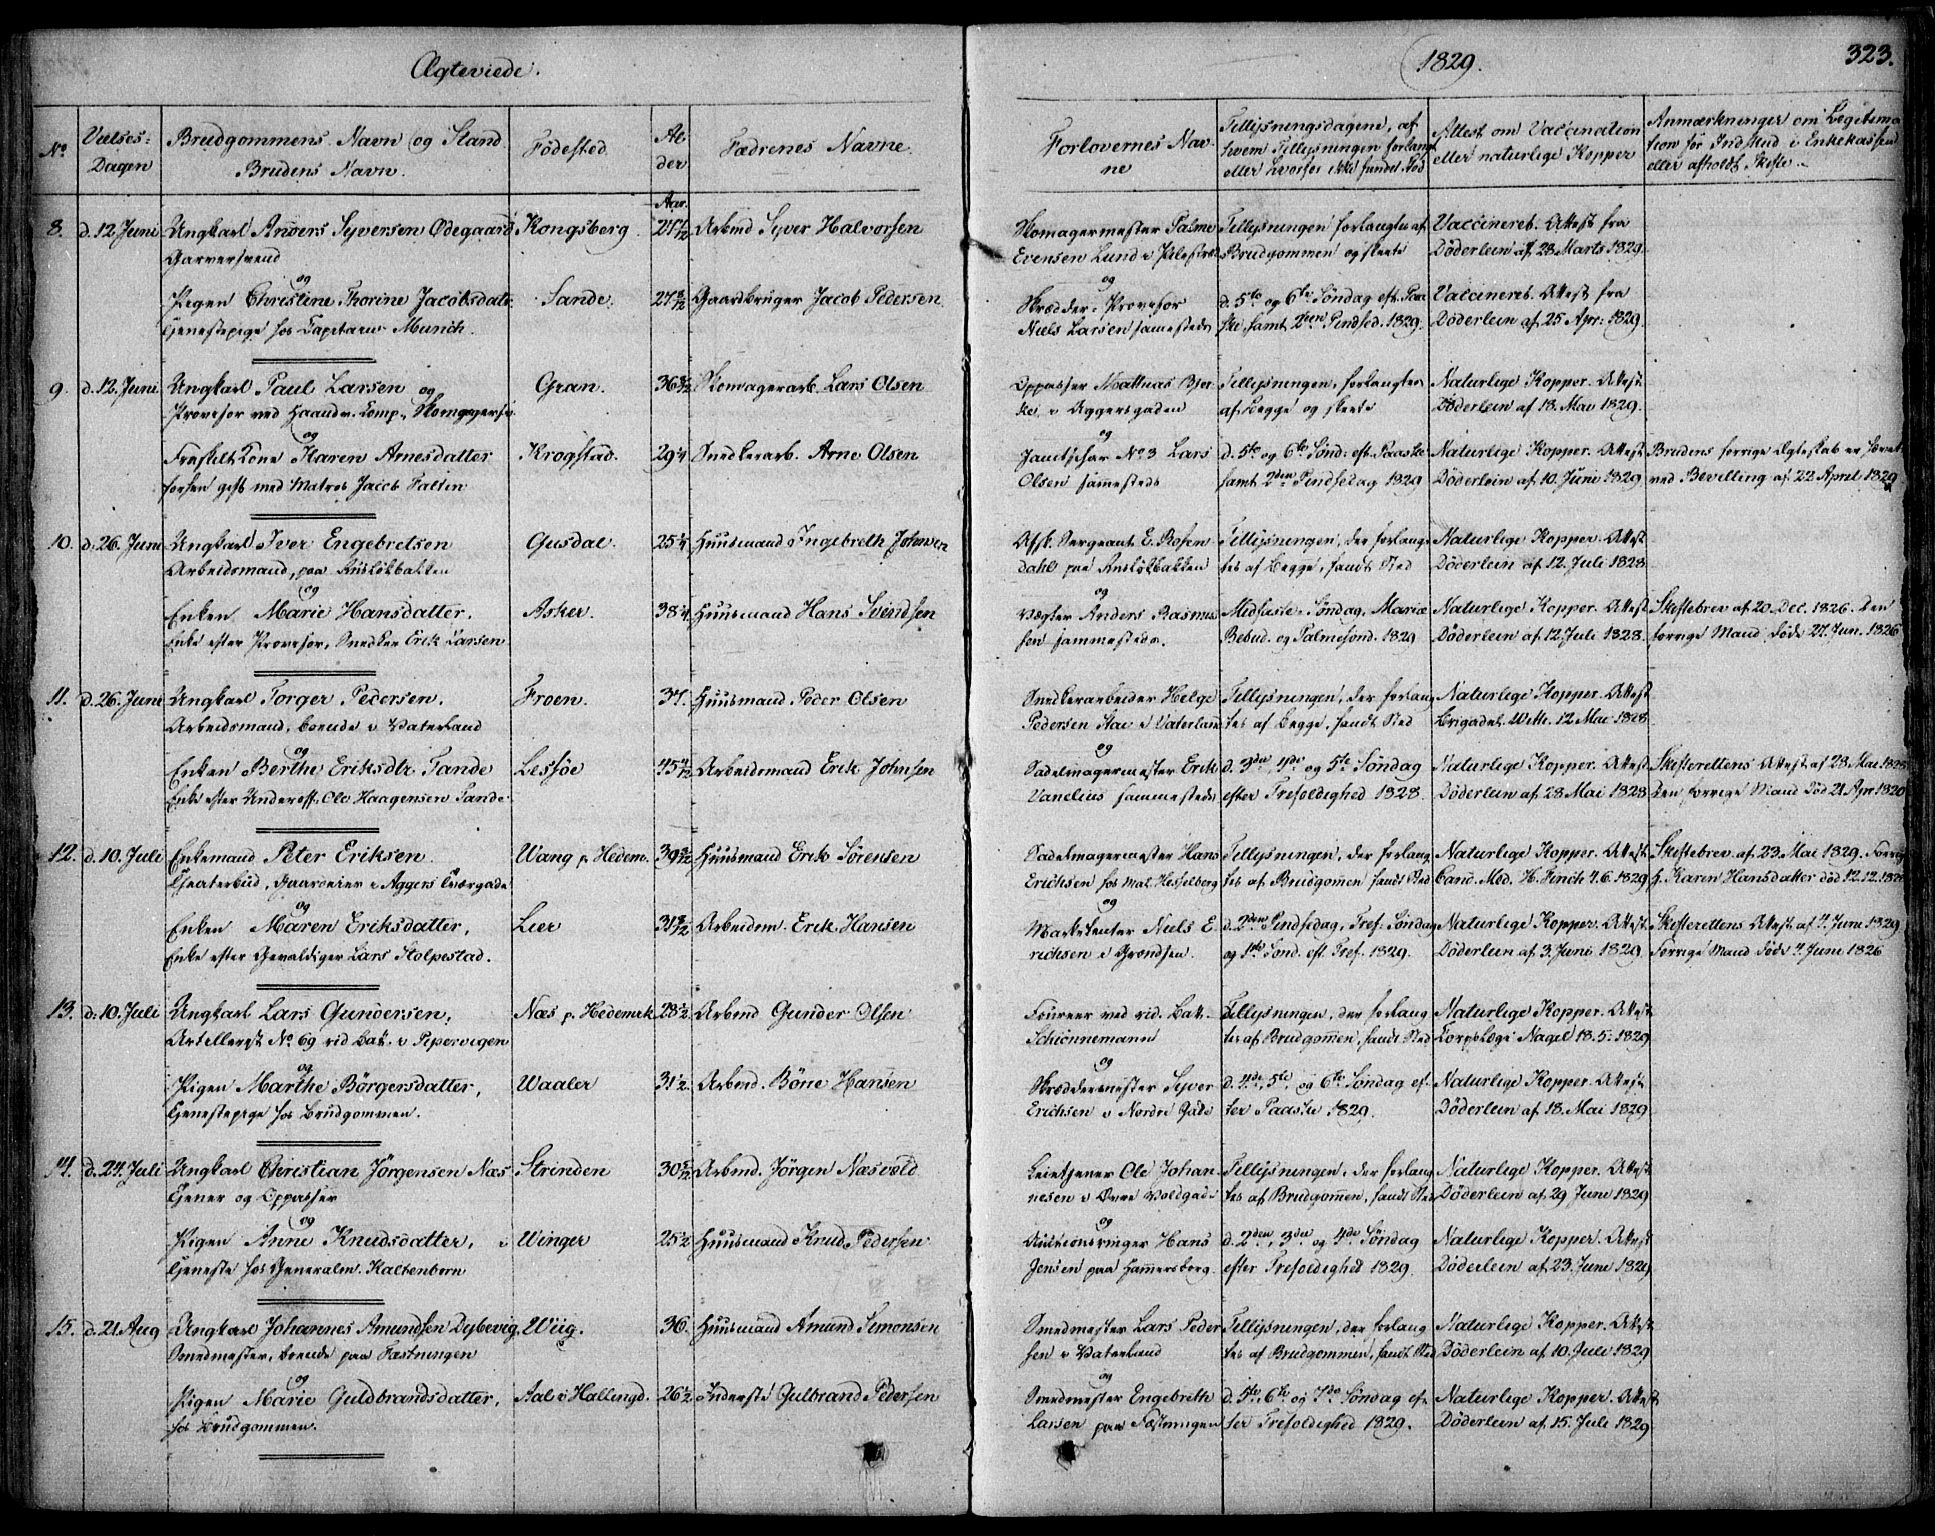 Ægteviede.
1829.
323.
No
Vielses-
Dagen
Brudgommens Navn og Stand.
Brudens Navn.
Fødested
Al-
der
Fædrenes Navne.
Forlovernes Nav-
ne
Tillysningsdagene, af
hvem Tillysningen forlangt
eller hvorfor ikke fundet Sted
Attest om Vaccination
eller naturlige Kopper
Anmærkninger om Legitima
tion for Indskud i Enkekassen
eller afholdt Skifte.
Aar.
8. d. 12 Juni Ungkarl Anders Syversen Ødegaard Kongsberg Arbmd Syver Halvorsen
Garversvend
og
Pigen Christine Thorine Jacobsdatr. Sande. Gaardbruger Jacob Pedersen
Tjenestepige hos Capitain Munch.
Skomagermester Palme Tillysningen forlangtes af Vaccineret. Attest fra
Evensen Lund i Pilestræd Brudgommen og skeete Döderlein af 28 Marts 1829.
og
Skrædder, Provisor d. 5te og 6te Søndag eft. Paa Vaccineret. Attest fra
Niels Larsen sammesteds ske samt 2den Pindsed. 1829. Döderlein af 25 Apr: 1829.
9. d. 12. Juni Ungkarl Paul Larsen og Gran. Skomagerarb. Lars Olsen
Provisor ved Haandv. Comp.,
og
Fraskilt Kone Karen Arnesdatter Krogstad. 29 1/4 Snedkerarb. Arne Olsen
forhen gift med Matros Jacob Falsen
Oppasser Mathias Bjer Tillysningen, forlangtes Naturlige Kopper. Attest
ke i Aggersgaden af Begge og skeete Döderlein af 18. Mai 1829.
og
Janitschar No 3 Lars d. 5te og 6te Sönd. eft. Paaske Naturlige Kopper. Attest Brudens forrige Ægteskab er hævet
Olsen sammesteds samt 2den Pindsedag 1829 Döderlein af 10. Juni 1829 ved Bevilling af 22 April 1829
10. d. 26. Juni Ungkarl Iver Engebretsen Gusdal. 25 1/4 Huusmand Ingebreth Johnsen
Arbeidsmand, paa Ruslökbakken
og
Enken Marie Hansdatter. Asker. 38 1/4 Huusmand Hans Svendsen
Enke efter Provisor, Snedker Erik Larsen
Afsk. Sergeant E. Rosen Tillysningen, der forlang Naturlige Kopper. Attest
dahl paa Ruslökbakken tes af Begge, fandt Sted Döderlein af 12. Juli 1828
og
Vægter Anders Rasmus Midfaste-Söndag, Mariæ Naturlige Kopper. Attest Skiftebrev af 20. Dec. 1826. Den
sen sammesteds. Bebud. og Palmesönd. 1829 Döderlein af 12 Juli 1828. forrige Mand døde 27. Jun. 1826
11. d. 26. Juni Ungkarl Torger Pedersen. Froen. 37. Huusmand Peder Olsen
Arbeidsmand, boende i Vaterland
og
Enken Berthe Eriksdtr. Tande Lessöe Arbeidsmand Erik Johnsen
Enke efter Underoff. Ole Haagensen Tande.
Snedkerarbeider Helge Tillysningen, der forlang Naturlige Kopper. Attest
Pedersen i Vaterland tes af Begge, fandt Sted Brigadel. Weth. 12 Mai 1828
og
Sadelmagermester Erik d. 3die, 4de og 5te Söndag Naturlige Kopper. Attest Skifterettens Attest af 28 Mai 1828
Vanelius sammesteds efter Trefoldighed 1828. Döderlein af 28 Mai 1828 Den forrige Mand død 21 Apr 1820
12. d. 10. Juli Enkemand Peter Eriksen. Wang p. Hedem. Huusmand Erik Sörensen
Theaterbud, Gaardeier i Aggers Tværgade
og
Enken Maren Eriksdatter, Lier Arbeidm. Erik Hansen
Enke efter Gevaldiger Lars Stolpestad.
Sadelmagermester Hans Tillysningen, der forlang Naturlige Kopper. Attest Skiftebrev af 23. Mai 1829. Forrig
Erichsen hos Mal. Hesselberg tes af Brudgomen fandt Sted Cand. Med. H. Finch 4.6.1829 H. Karen Hansdatter død 12.12.1828
og
Marketenter Niels E. d. 2den Pindsedag, Tref. Söndag Naturlige Kopper. Attest Skifterettens Attest af 4 Juni 1829
richsen i Grændsen. og 1ste Sönd. eft. Tref. 1829. Döderlein af 3. Juni 1829 Forrige Mand døde 4 Juni 1826
13. d. 10. Juli Ungkarl Lars Gundersen, Næs p. Hedemrk 28 1/2 Arbmd Gunder Olsen
Artillerist No 69 rid Bat. i Pipervigen
og
Pigen Marthe Börgersdatter, Waaler 31 1/2. Arbmd. Böne Hansen
Tjenestepige hos Brudgommen.
Foureer ved rid. Batt. Tillysningen, der forlang Naturlige Kopper. Attest
Schiönnemann tes af Brudgomen, fandt Sted Corpslæge Nagel 18.5.1829
og
Skræddermester Syver d. 4de, 5te, og 6te Söndag ef- Naturlige Kopper. Attest
Erichsen i Nordre Gade ter Paaske 1829. Döderlein af 18. Mai 1829
14. d. 24. Juli Ungkarl Christian Jörgensen Næs Strinden Arbmd. Jörgen Næsvold
Tjener og Oppasser
og
Pigen Anne Knudsdatter, i Winger 25 1/2 Huusmand Knud Pedersen
Tjeneste hos Generalm. Kaltenborn
Leietjener Ole Johan Tillysningen, der forlang Naturlige Kopper. Attest
nesen i Övre Voldgade tes af Brudgomen, fandt Sted Döderlein af 29 Juni 1829
og
Auctionsringer Hans d. 2den, 3die og 4de Söndag Naturlige Kopper. Attest
Jensen paa Hamersborg. efter Trefoldighed 1829. Döderlein af 23. Juni 1829
15. d. 21. Aug Ungkarl Johannes Amundsen Dybevig, Wiig. 36. Huusmand Amund Simonsen
Smedmester, boende paa Fæstningen
og
Pigen Marie Guldbrandsdatter, Aal i Hallingd. 26 1/2 Inderste Gulbrand Pedersen
hos Brudgommen.
Smedmester Lars Peder Tillysningen, der forlang Naturlige Kopper. Attest
sen i Vaterland tes af Brudgommen, fandt Sted Döderlein af 10. Juli 1829
og
Smedmester Engebreth d. 5te, 6te og 7de Söndag ef- Naturlige Kopper. Attest
Larsen paa Fæstningen ter Trefoldighed 1829. Döderlein af 15. Juli 1829